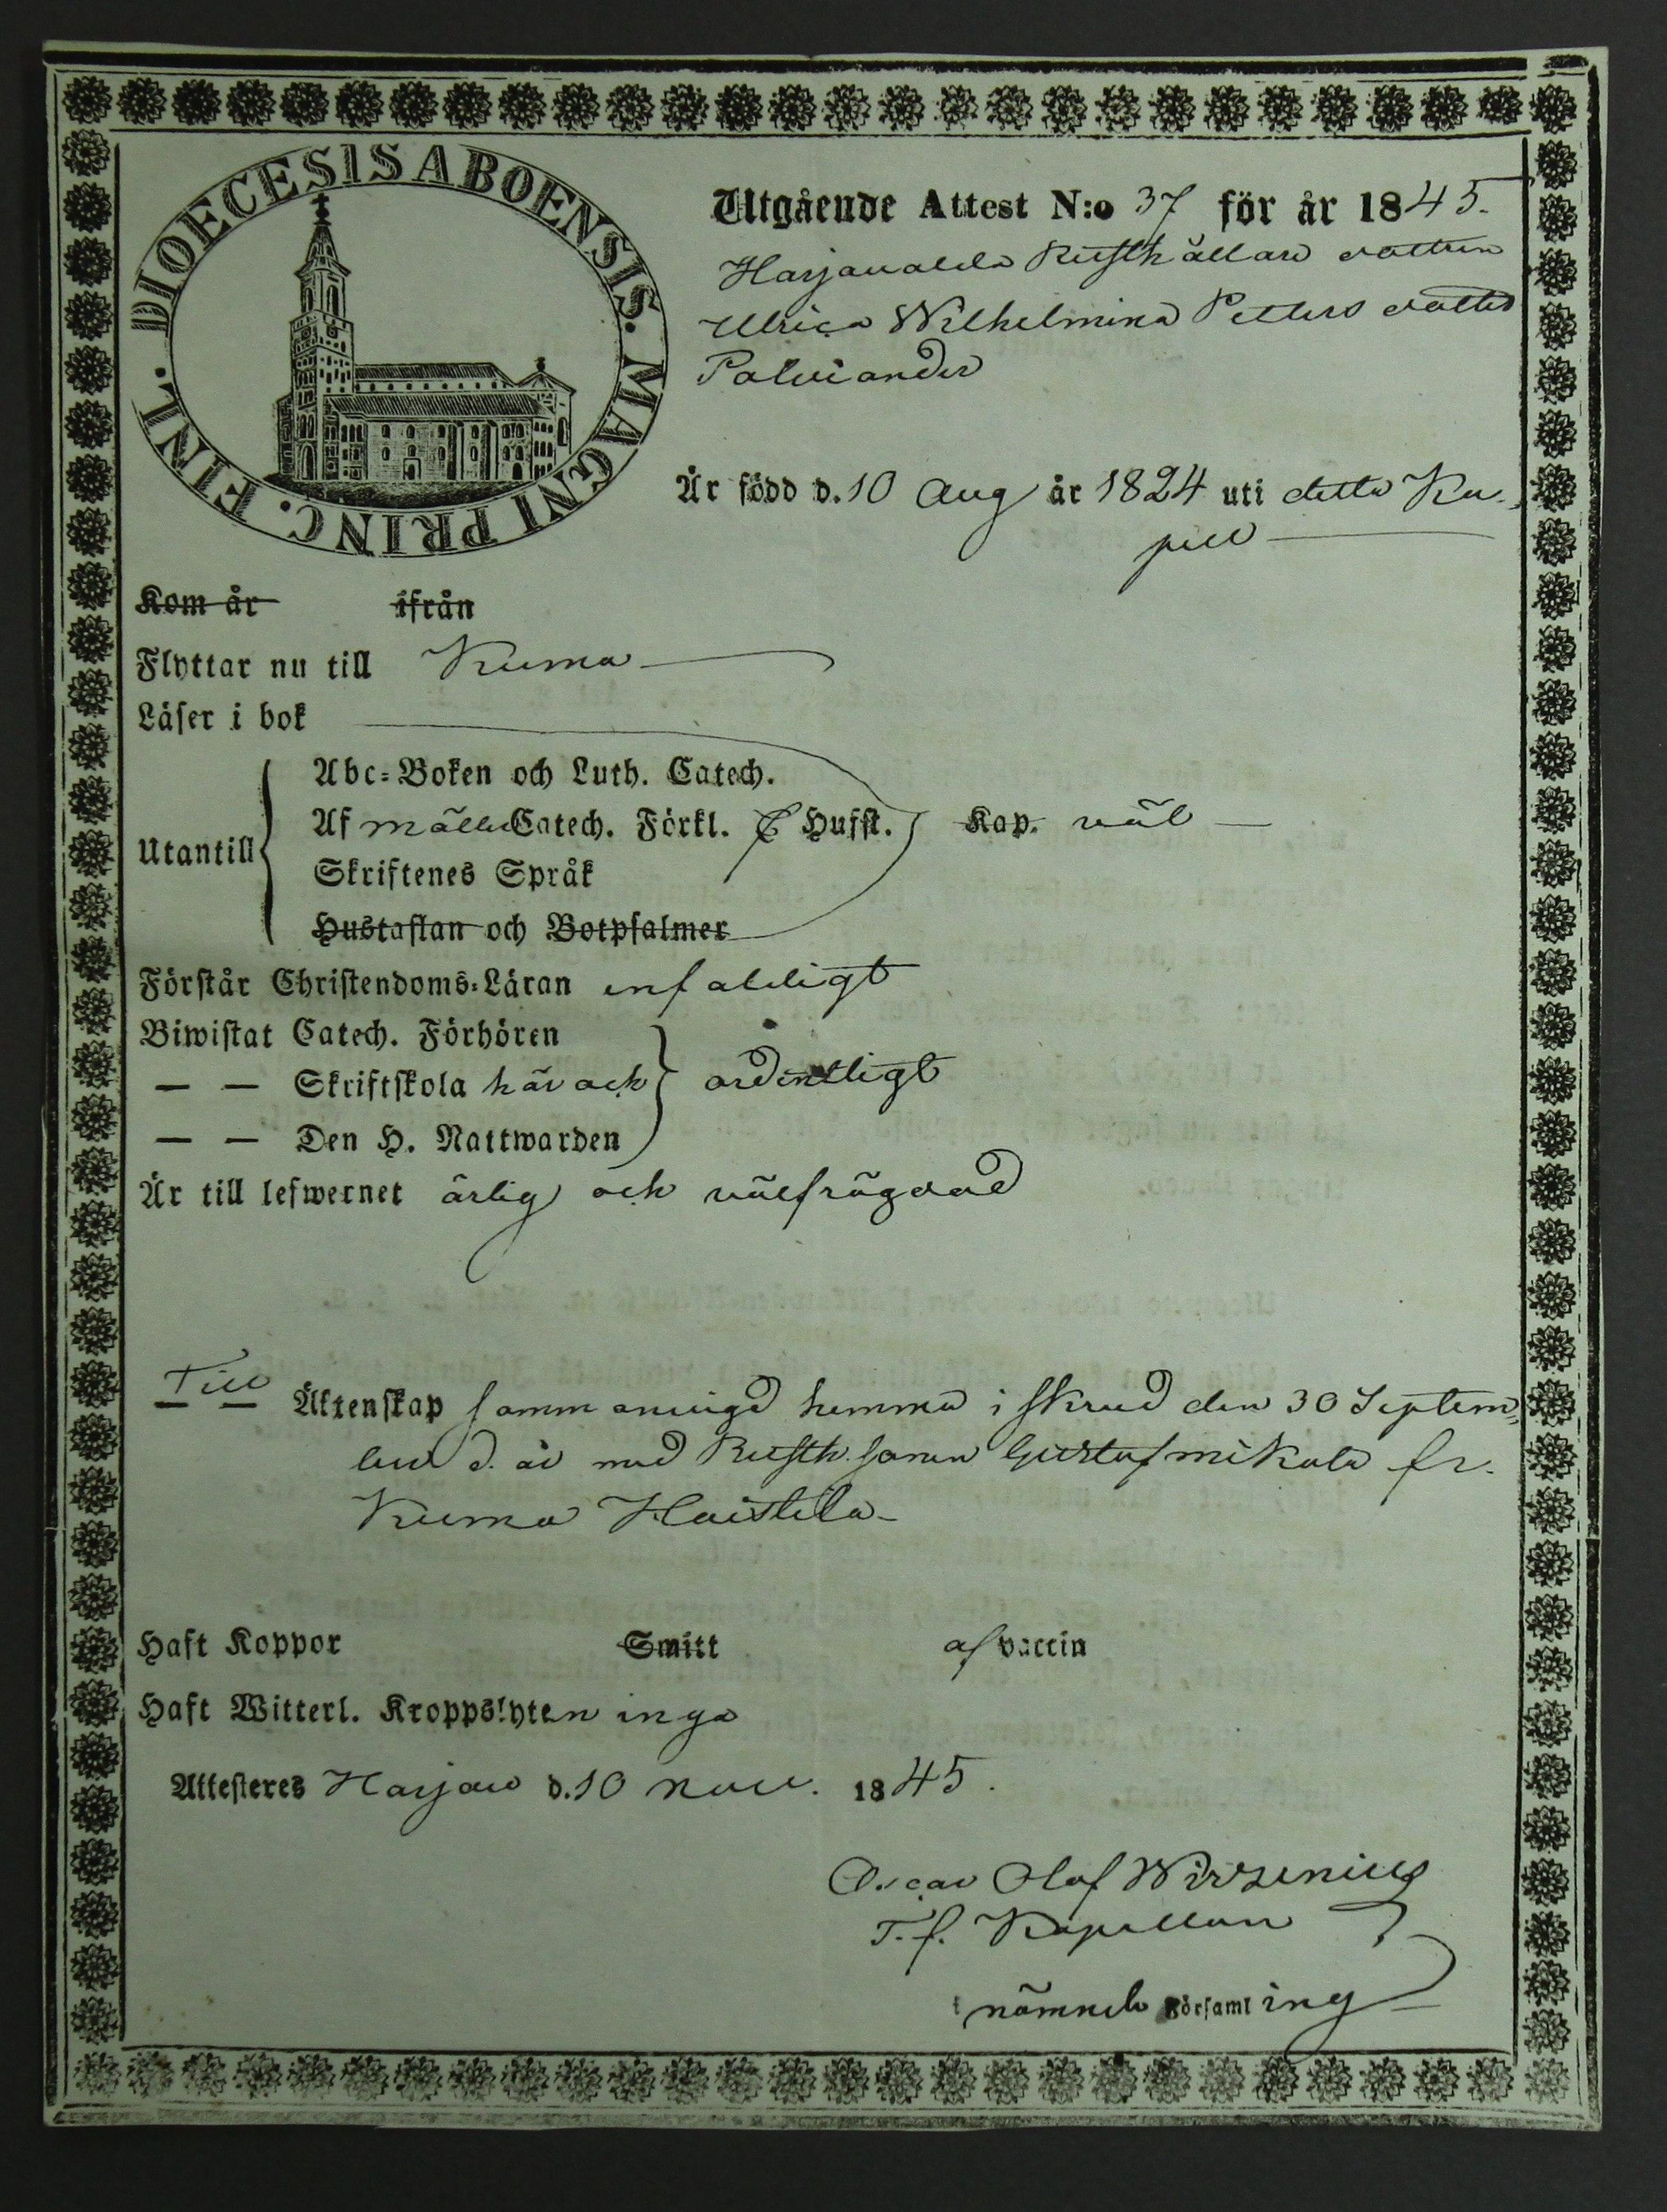 DIOECESIS ABOENSIS. MAGNI PRINC. FINL.
Utgående Attest N:o 37 för år 1845.
Harjavalda Rusthållare dottren
Ulrica Wilhelmina Petters dotter
Palviander
Är född d. 10 Aug år 1824 uti detta Ka-
pell
Kom år ifrån
Flyttar nu till Kumo
Läser i bok
Utantill
Abc-Boken och Luth. Catech.
Af Catech. Förkl. Husst. Kap. väl
Skriftenes Språk
Hustaflan och Botpsalmer
Förstår Christendoms-Läran enfaldigt
Biwistat Catech. Förhören
— — Skriftskola här och ordentligt
— — Den H. Nattwarden
Är till lefwernet ärlig och välfrägdad
Till Äktenskap sammanvigd hemma i Skrud den 30 Septem-
ber d. år med Rusth. sonen Gustaf Mikola fr.
Kumo Haistila
Haft Koppor Smitt af vaccin
Haft Witterl. Kroppslyten inga
Attesteres Harjav d. 10 Nov. 1845.
Oscar Olof Wirzenius
T. f. Kapellan
i nämnde Församling